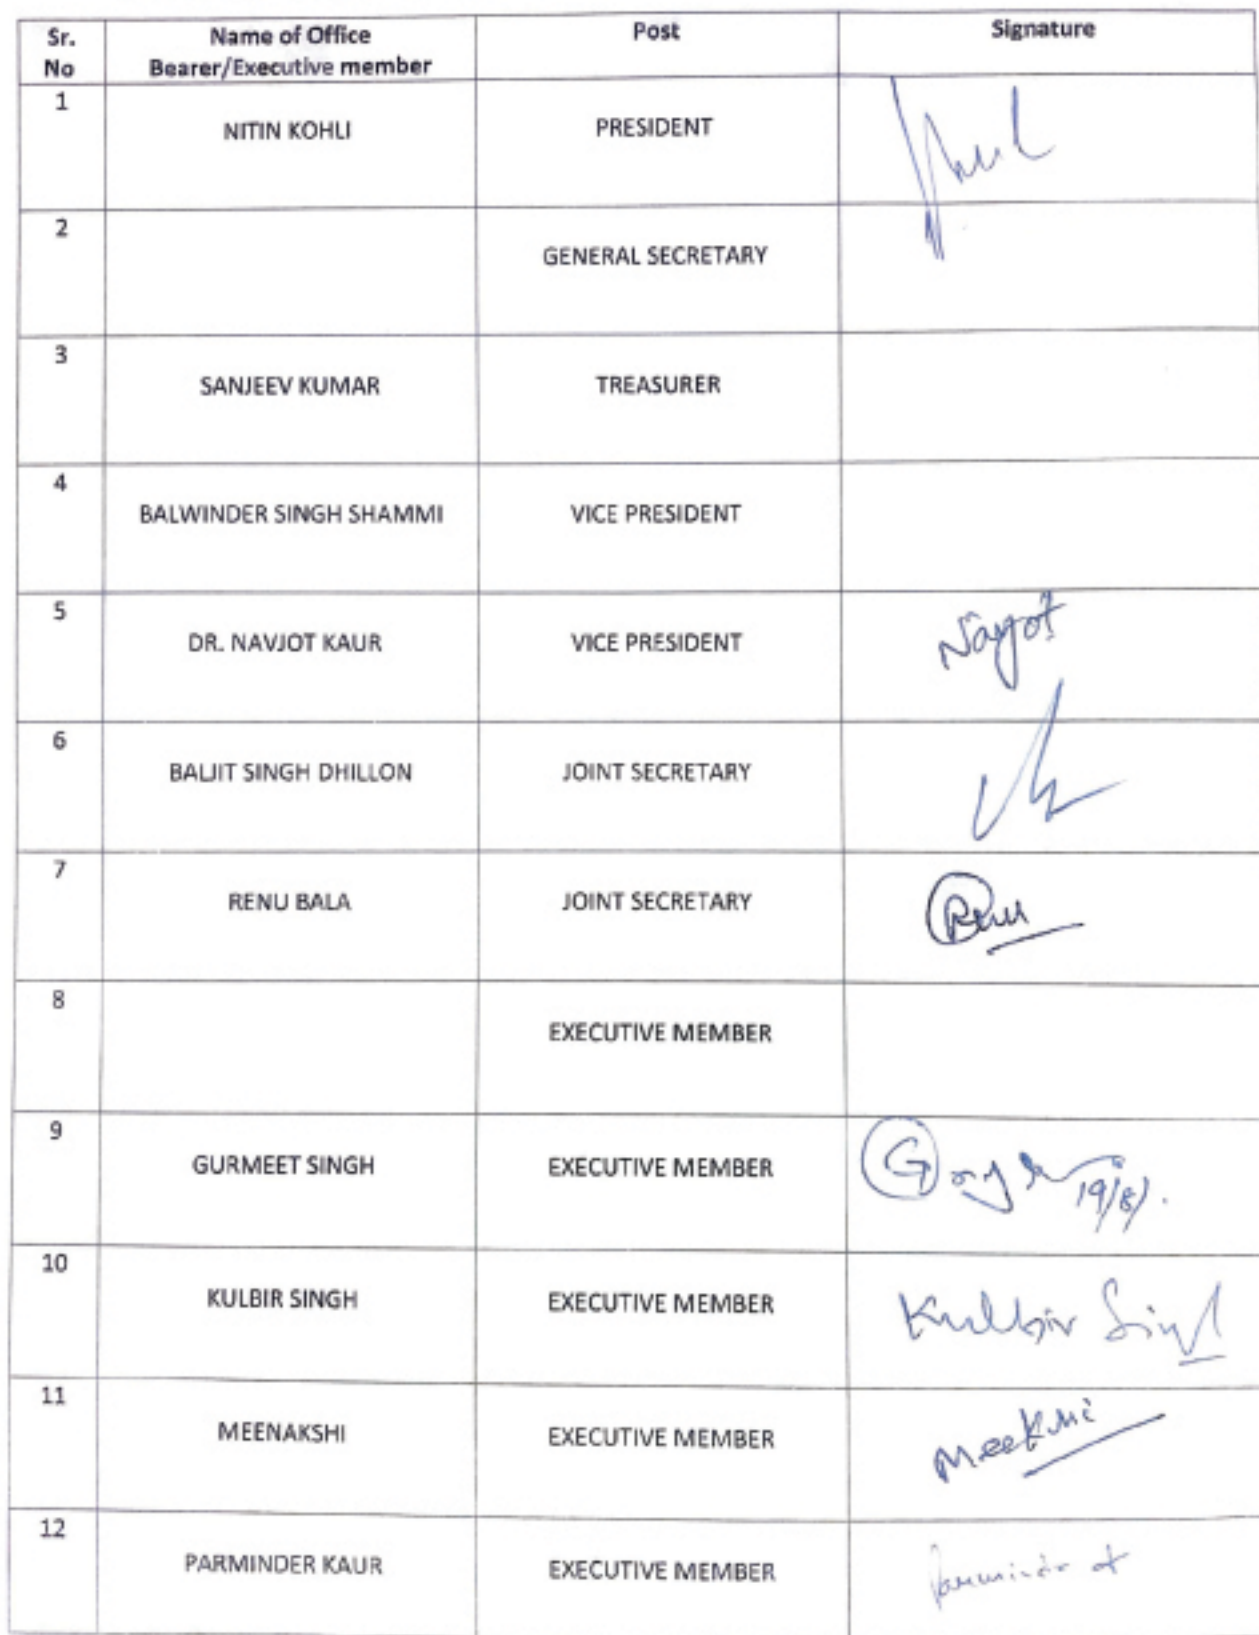 Sr. No Name of Office Bearer/Executive member Post Signature
1 NITIN KOHLI PRESIDENT
2 GENERAL SECRETARY
3 SANJEEV KUMAR TREASURER
4 BALWINDER SINGH SHAMMI VICE PRESIDENT
5 DR. NAVJOT KAUR VICE PRESIDENT Navjot
6 BALJIT SINGH DHILLON JOINT SECRETARY
7 RENU BALA JOINT SECRETARY Renu
8 EXECUTIVE MEMBER
9 GURMEET SINGH EXECUTIVE MEMBER 19/8/.
10 KULBIR SINGH EXECUTIVE MEMBER Kulbir Singh
11 MEENAKSHI EXECUTIVE MEMBER
12 PARMINDER KAUR EXECUTIVE MEMBER